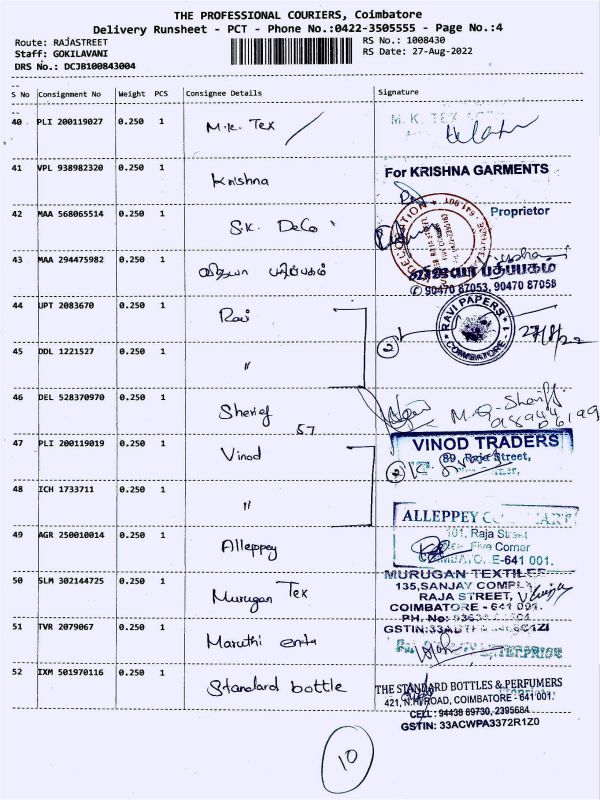 THE PROFESSIONAL COURIERS, Coimbatore
Delivery Runsheet - PCT - Phone No.:0422-3505555 - Page No.:4
Route: RAJASTREET
RS No.: 1008430
Staff: GOKILAVANI
RS Date: 27-Aug-2022
DRS No.: DCJB100843004
S No Consignment No Weight PCS Consignee Details Signature
40 PLI 200119027 0.250 1 M.K. Tex
M. K. TEX
41 VPL 938982320 0.250 1 Krishna
For KRISHNA GARMENTS
Proprietor
42 MAA 568065514 0.250 1 S.K. Deco
43 MAA 294475982 0.250 1 விஜயா பதிப்பகம்
விஜயா பதிப்பகம்
90470 87053, 90470 87058
44 UPT 2083670 0.250 1 Ravi
RAVI PAPERS
COIMBATORE - 1
27/8/22
45 DDL 1221527 0.250 1 "
2
46 DEL 528370970 0.250 1 Sherief
57
47 PLI 200119019 0.250 1 Vinod
VINOD TRADERS
89, Raja Street,
Five Corner,
2
48 ICH 1733711 0.250 1 "
49 AGR 250010014 0.250 1 Alleppey
ALLEPPEY
101, Raja Street
Five Corner
COIMBATORE-641 001.
50 SLM 302144725 0.250 1 Murugan Tex
MURUGAN TEXTILES
135,SANJAY COMPLEX
RAJA STREET,
COIMBATORE - 641 001.
PH. No:
GSTIN:
51 TVR 2079067 0.250 1 Maruthi ent
ENTERPRISE
52 IXM 501970116 0.250 1 Standard bottle
THE STANDARD BOTTLES & PERFUMERS
421, N.H. ROAD, COIMBATORE - 641 001.
CELL : 94438 69730, 2395684
GSTIN: 33ACWPA3372R1Z0
10